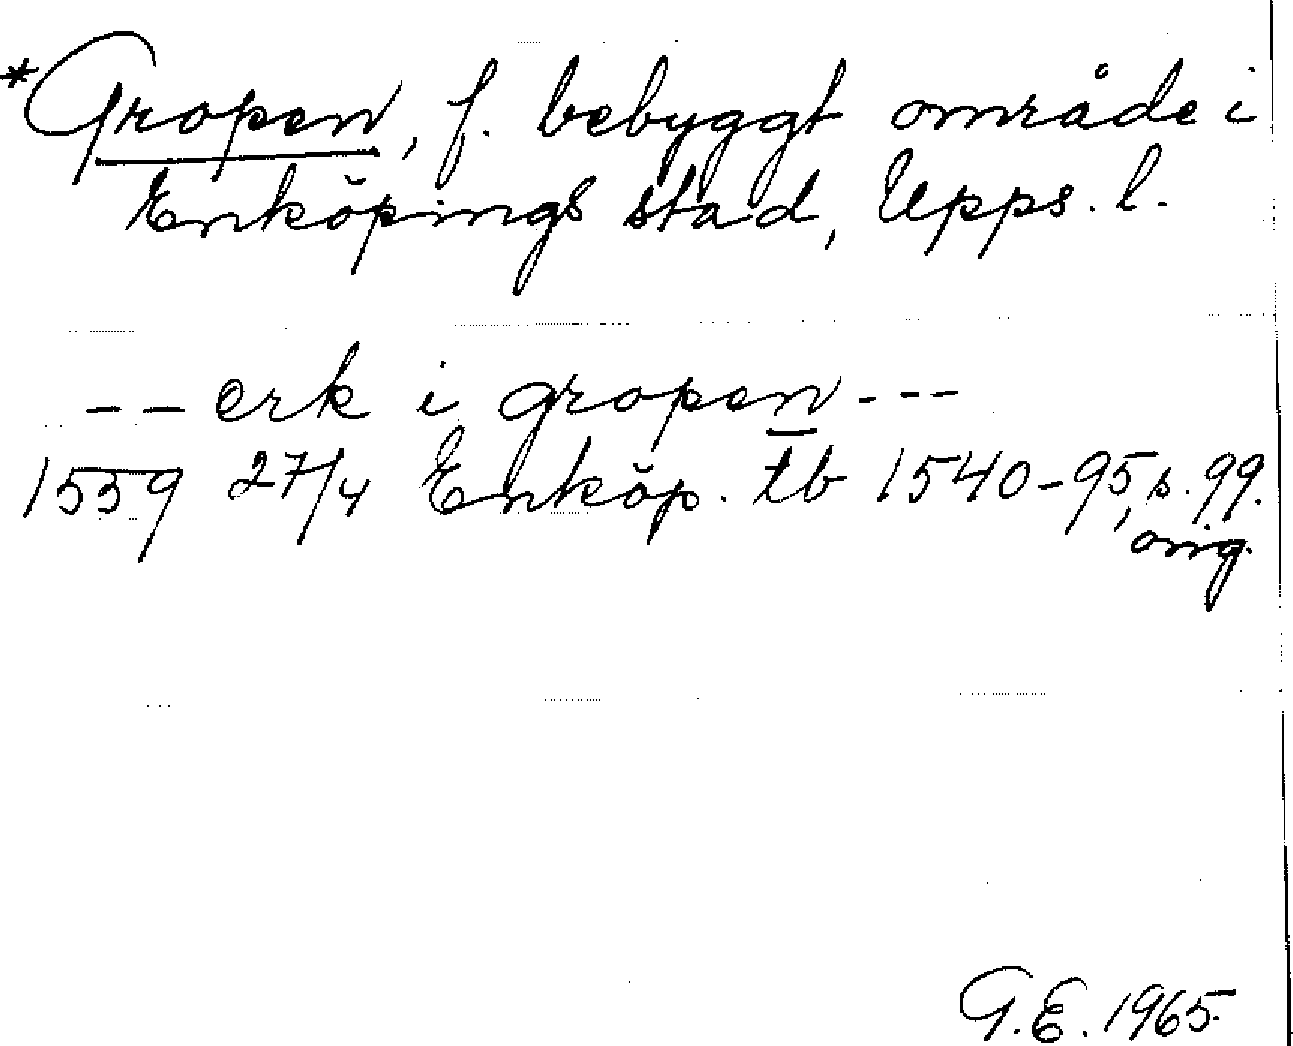 *Gropen, f. bebyggt område i
Enköpings stad, Upps. l.
-- erk i gropen ---
1559 27/4 Enköp. tb 1540-95, s. 99.
orig.
G.E. 1965.